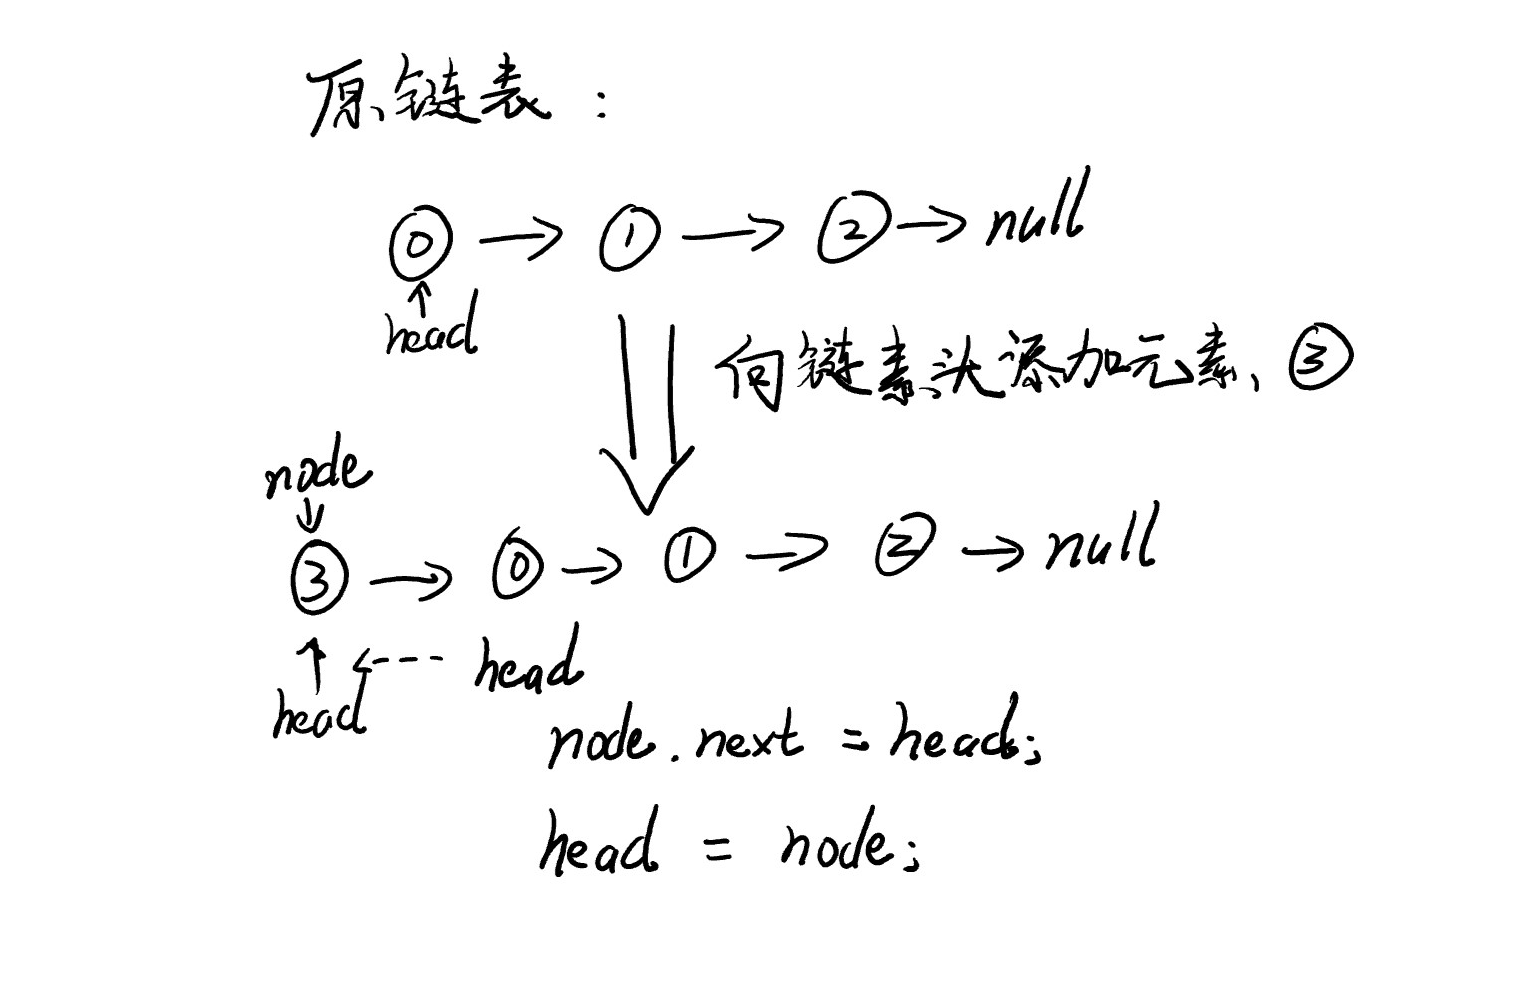 原链表：
⓪ → ① → ② → null
↑
head
向链素头添加元素 ③
node
↓
③ → ⓪ → ① → ② → null
↑ ← head
head
node.next = head;
head = node;